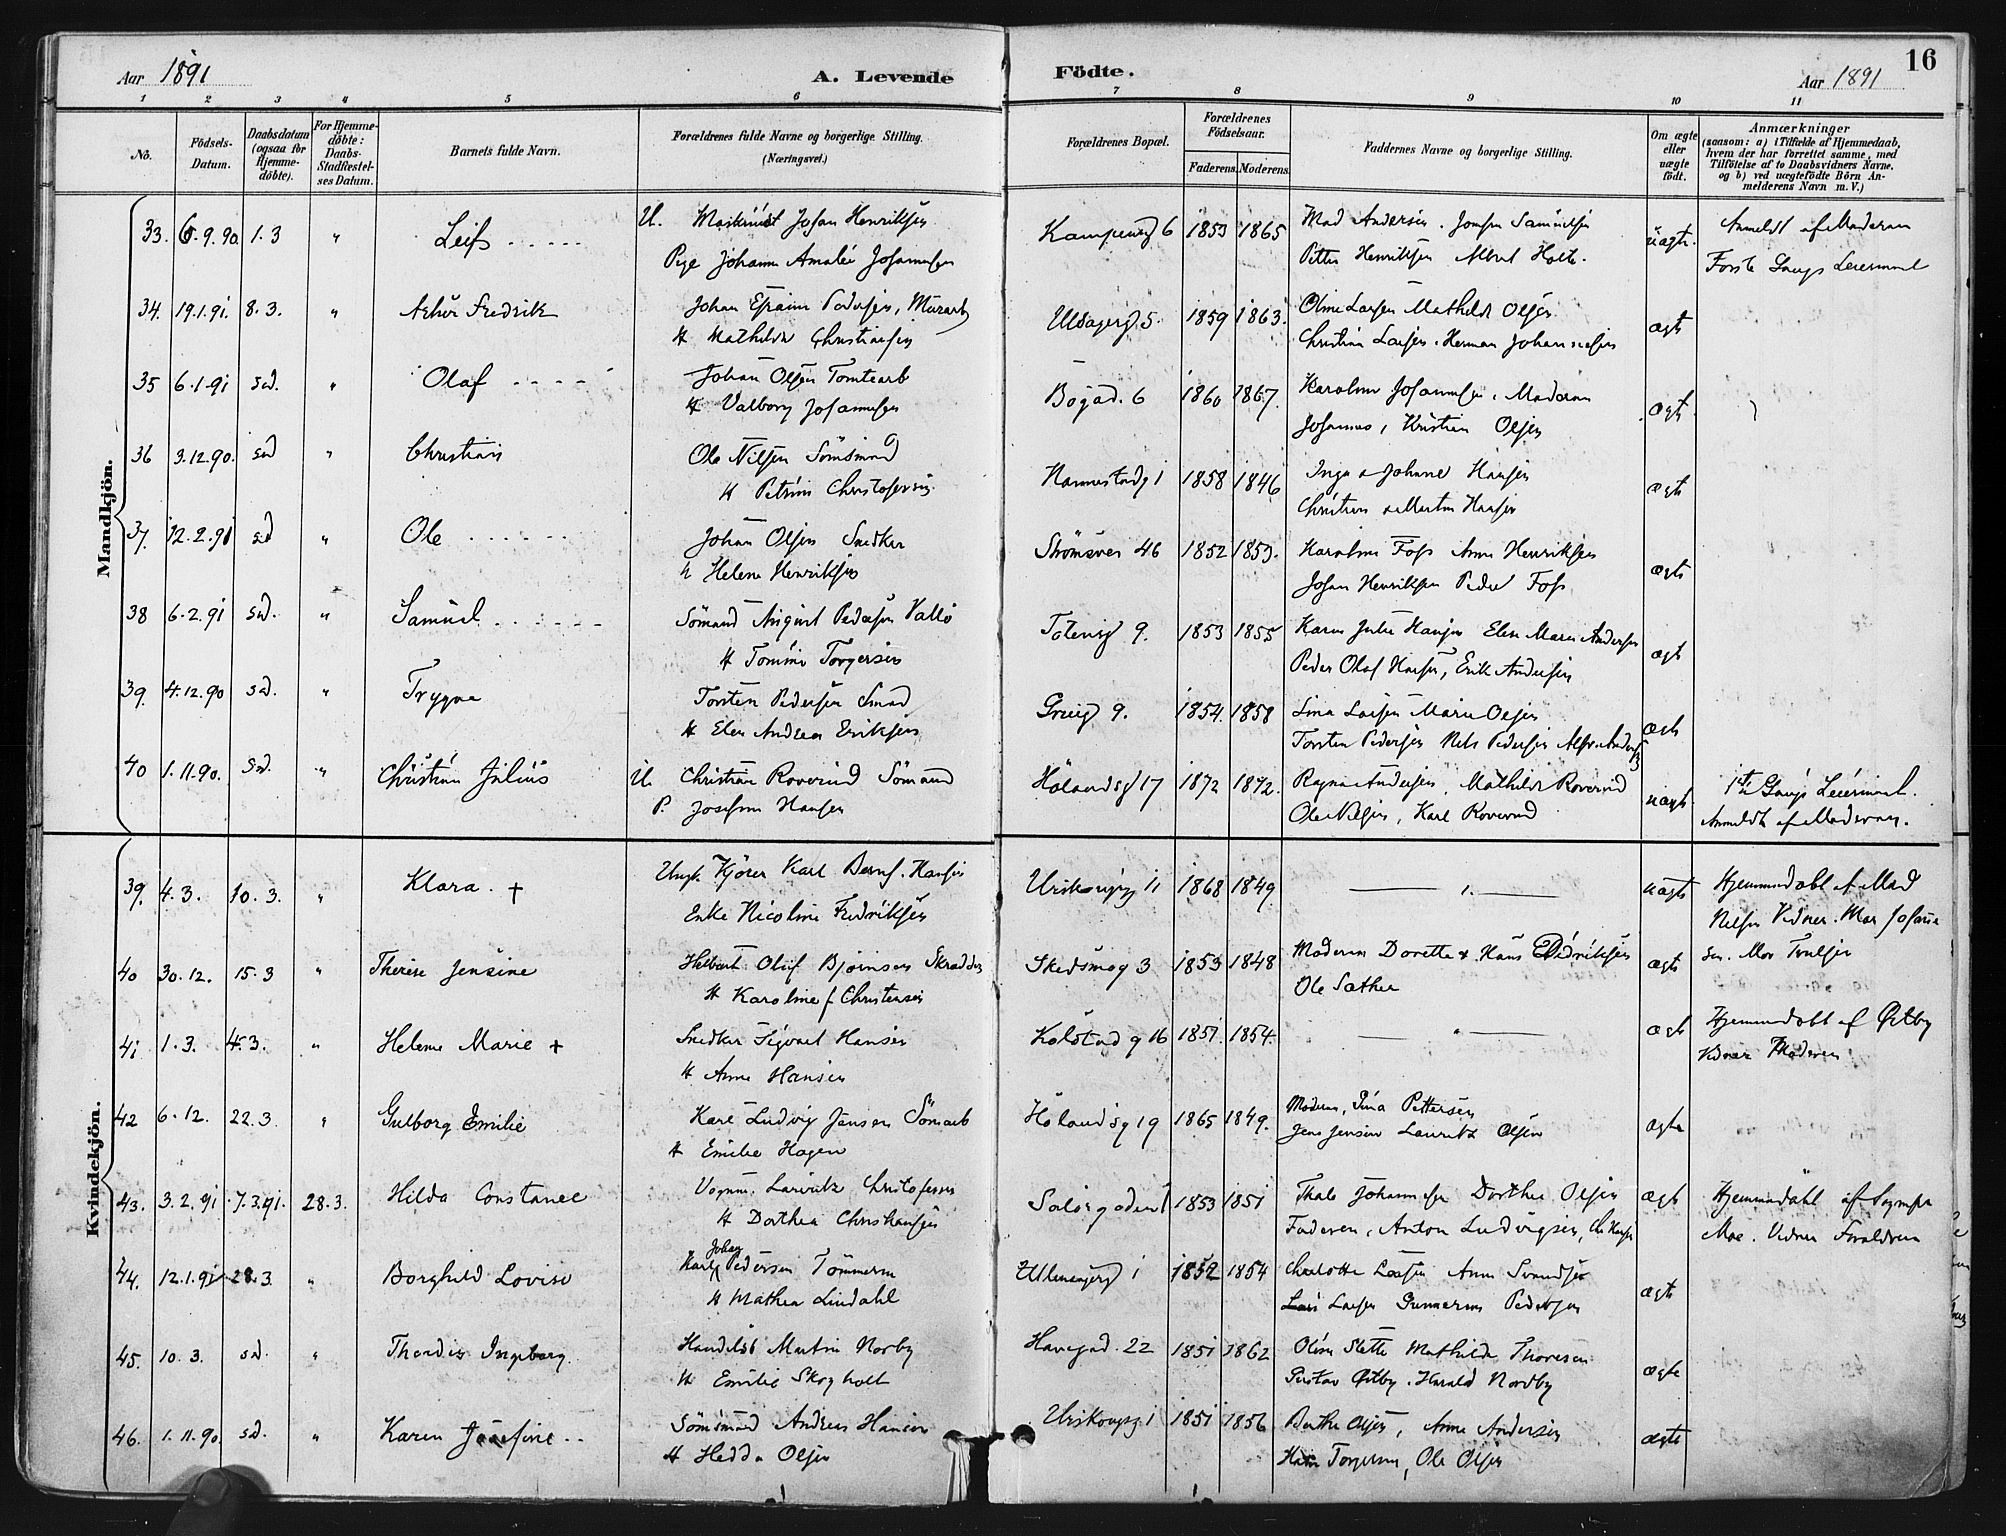 16
Aar 1891 A. Levende Födte. Aar 1891
1 2 3 4 5 6 7 8 9 10 11
No. Födsels-Datum. Daabsdatum (ogsaa for Hjemme-döbte). For Hjemme-döbte: Daabs-Stadfestel-ses Datum. Barnets fulde Navn. Forældrenes fulde Navne og borgerlige Stilling. (Næringsvei.) Forældrenes Bopæl. Forældrenes Födselsaar. Faderens. Moderens. Faddernes Navne og borgerlige Stilling. Om ægte eller uægte födt. Anmærkninger (saasom: a) i Tilfælde af Hjemmedaab, hvem der har forrettet samme, med Tilföielse af to Daabsvidners Navne. og b) ved uægtefödte Börn An-melderens Navn m. V.)
Mandkjön.
33. 6.9.90. 1.3 " Leif U. Maskinist Johan Henriksen Kampeng 6 1853 1865 Mad Andersen. Samuelsen uægte. Anmeldt af Moderen
Pige Johanne Amalie Johannesen Petter Henriksen Albert Holte. Første Gangs Leiermaal
34. 19.1.91. 8.3. " Arthur Fredrik Johan Efraim Pedersen, Murarb Ullsagerg 5. 1859 1863. Oline Larsen Mathilde Olsen ægte
H Mathilde Christiansen Christian Larsen. Herman Johannesen
35 6.1.91 sd. " Olaf Johan Olsen Tomtearb Bögad. 6 1860 1867. Karoline Johannesen, Moderen ægte
H Valborg Johannesen Johannes, Kristian Olsen
36 3.12.90. sd " Christian Ole Nilsen Sömand Hannestadg 1 1858 1846 Inga & Johanne Hansen ægte
H Petrine Christofersen Christian & Martin Hansen
37. 12.2.91 sd " Ole Johan Olsen Snedker Strömsvei 46 1852 1853. Karoline Foss Anne Henriksen ægte
H Helene Henriksen Johan Henriksen Peder Foss
38 6.2.91 sd. " Samuel Sömand August Pedersen Vallö Totensg 9. 1853 1855 Karen Julie Hansen Elen Marie Andersen ægte
H Tomine Torgersen Peder Olaf Hansen, Erik Andersen
39. 4.12.90 sd. " Trygve Torsten Pedersen Smed Greig 9. 1854. 1858 Lina Larsen Marie Olsen ægte
H Elen Andrea Eriksen Torsten Pedersen Nels Pedersen Alfr. Andersen
40 1.11.90. sd. " Christian Julius U. Christian Roverud Sömand Hölandsg 17 1872 1872. Ragna Andersen, Mathilde Roverud uægte 1ste Gangs Leiermaal.
P. Josefine Hansen Ole Nilsen, Karl Roverud Anmeldt af Moderen.
Kvindekjön.
39. 4.3. 10.3. " Klara. + Ungk. Kjörer Karl Bernh. Hansen Urskougsg 11 1868 1849. " uægte Hjemmedöbt af Mad
Enke Nicoline Fredriksen Nilsen Vidner. Mar Johanne
40 30.12. 15.3 " Therese Jensine Helbert Oluf Björnsen Skrædder Skedsmog 3 1853 1848 Moderen Dorette & Hans Didriksen ægte sen. Mor
H Karoline f Christensen Ole Sæther
41 1.3. 4.3. " Helene Marie + Snedker Sigvart Hansen Kolstad g 16 1851. 1854. " ægte Hjemmedöbt af Østby
H Anne Hansen Vidner Moderen
42 6.12. 22.3. " Gulborg Emilie Karl Ludvig Jensen Sömarb Hölandsg 19 1865 1849. Moderen, Lina Pettersen ægte
H Emilie Hagen Jens Jensen Lauritz Olsen
43. 3.2.91 7.3.91. 28.3. Hilda Constance Vognm. Lauritz Christofersen Solörgaden 1 1853 1851 Thale Johannesen Dorthea Olsen ægte Hjemmedöbt af
H Dorthea Christiansen Faderen, Anton Ludvigsen, Moe. Vidner Foreldrene
44. 12.1.91 28.3 " Borghild Lovise Karl Johan Pedersen Tömmerm Ullensagerg 1 1852 1854 Charlotte Larsen Anne Svendsen ægte
H Mathea Lindahl Lars Larsen Gunnerius Pedersen
45. 10.3. sd. " Thordis Ingeborg. Handelsb Martin Norby Havegad. 22 1851 1862 Olina Slette Mathilde Thoresen ægte
H Emilie Skogholt Gustav Østby. Harald Nordby
46. 1.11.90. sd. " Karen Josefine Sömand Andreas Hansen Urskougsg 1 1851 1856 Berthe Olsen, Anne Andersen ægte
H Hedda Olsen Hans Torgersen, Ole Olsen